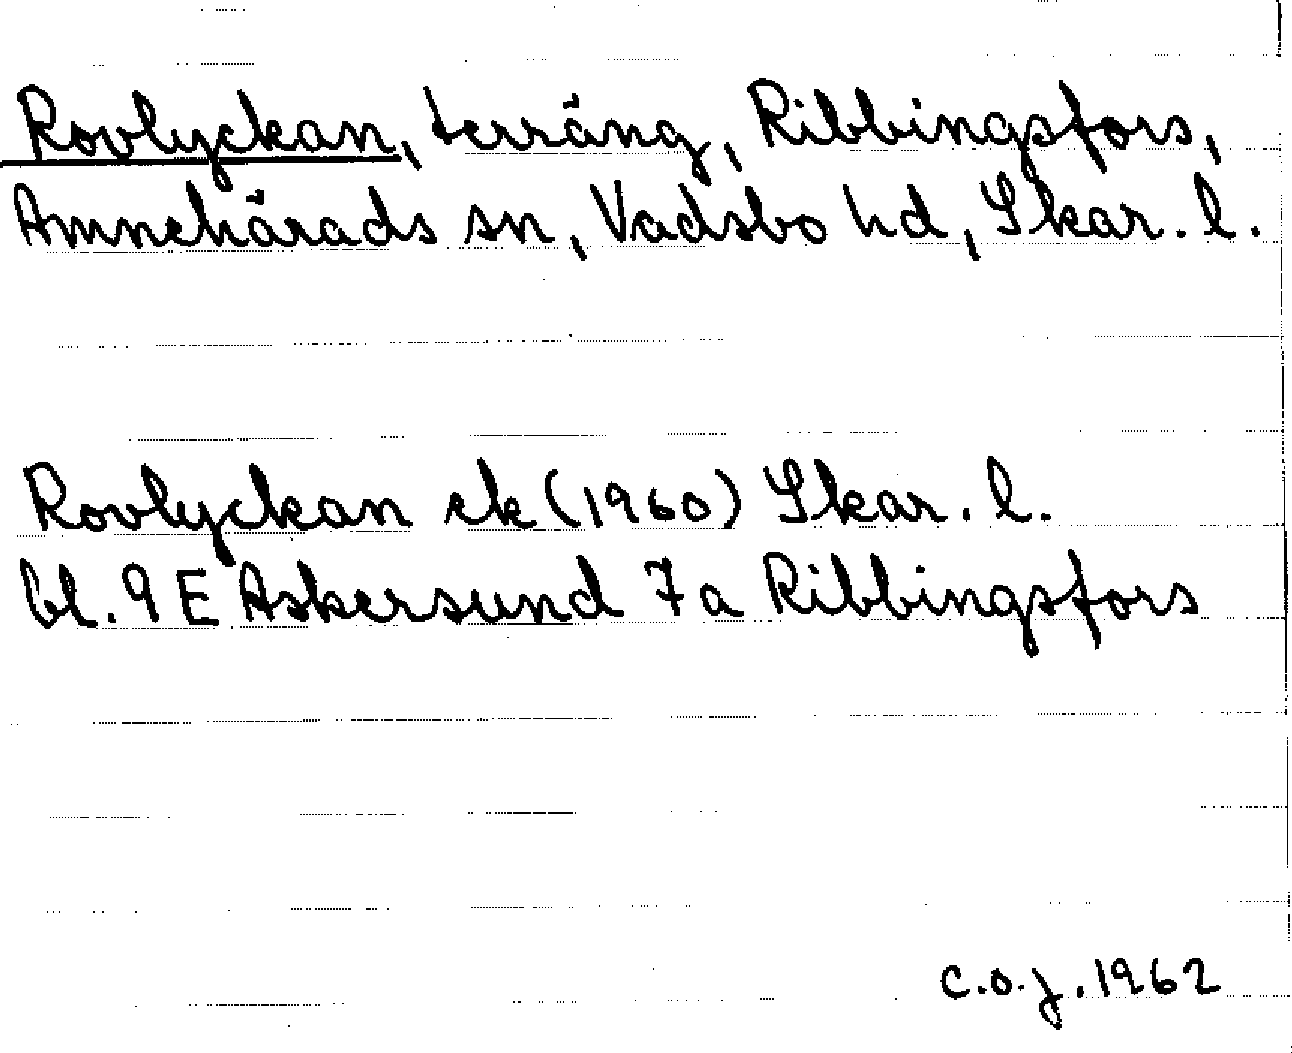 Rovlyckan, terräng, Ribbingsfors,
Amnehärads sn, Vadsbo hd, Skar. l.
Rovlyckan ek (1960) Skar. l.
bl. 9 E Askersund 7 a Ribbingsfors
C.O.J. 1962